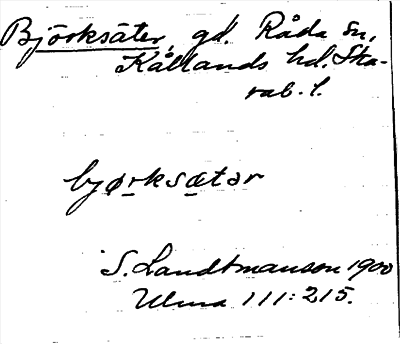 Björksäter, gd. Råda sn,
Kållands hd. Ska-
rab. l.
bjørksætər
S. Landtmanson 1900
Ulma 111:215.